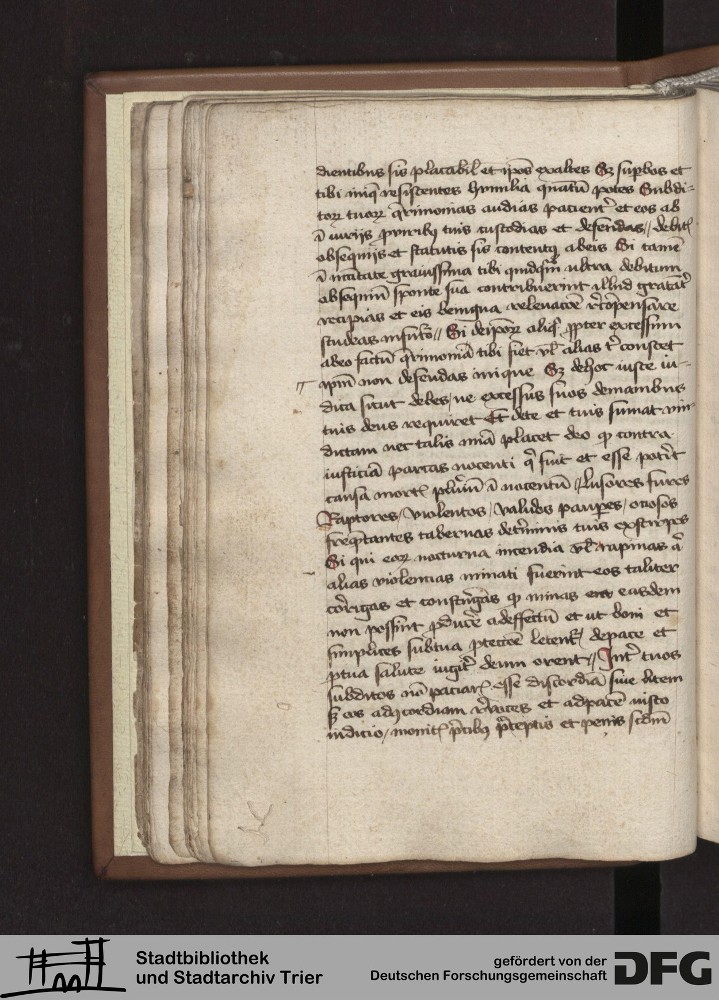 dientibus sis placabil et ipos exaltes Sz supbos et
tibi iniq resistentes humilia quatu potes Subdi-
tor tuor qrimonias audias pacient et eos ab
i iurijs puribz tuis custodias et defendas // debit
obsequijs et statutis sis contentq abeis Si tame
i ncitate grauissima tibi quidqm ultra debitum
obsequiu sponte sua contribuerint illud gratat
recipias et eis benigna releuacoe recopensare
studeas Si deipor aliq ppter excessum
abeo factu qrimonia tibi fiet ul alias t constet
ipm non defendas inique Sz dehoc iuste iu-
dica sicut debes / ne excessus suos demanibus
tuis deus requiret Et dete et tuis sumat vin
dictam nec talis mia placet deo q contra
iusticia parcas nocenti q fuit et esse potit
causa mort plurim i nocentu / lusores fures
Raptores / violentos / validos paupes / ociosos
freqtantes tabernas detminis tuis exstirpes
Si qui eor nocturna incendia ul rapinas a
alias violencias minati fuerint eos taliter
corrigas et constrigas q minas easdem
non possint pduce adeffectu et ut boni et
simplices subtua pteccoe letent depace et
ptua salute iugit deum orent // Int tuos
subditos no paciar esse discordia siue litem
sz eos adcordiam reuoces et adpace iusto
iudicio / monit pcibz pceptis et penis scdm
Stadtbibliothek
und Stadtarchiv Trier
gefördert von der
Deutschen Forschungsgemeinschaft
DFG